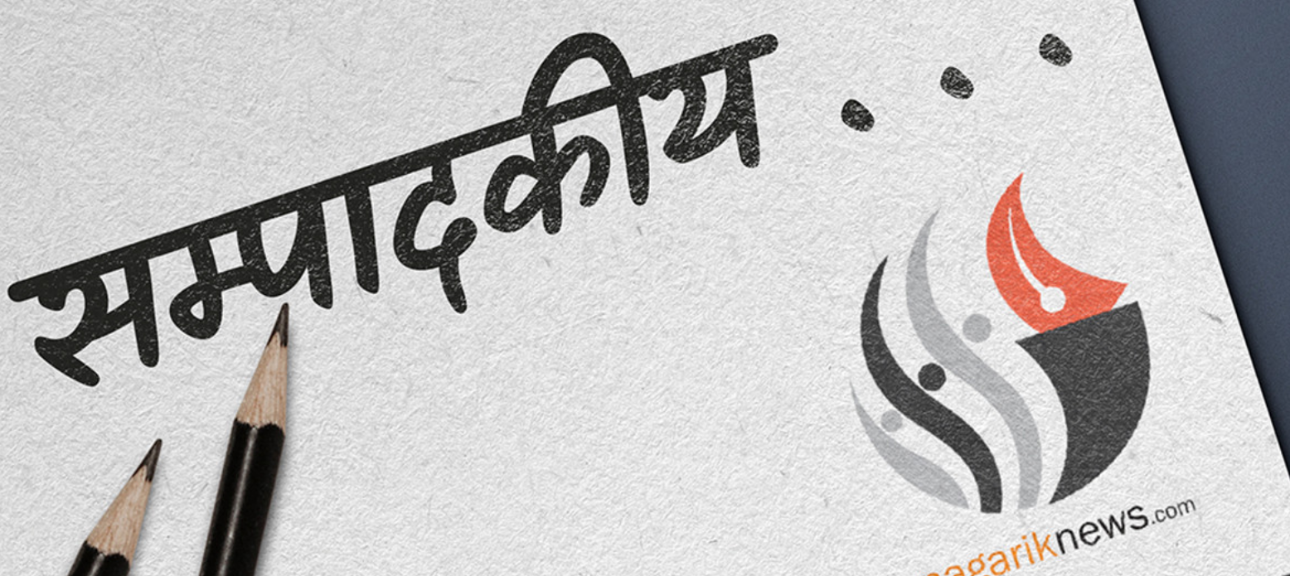 सम्पादकीय...
agariknews.com